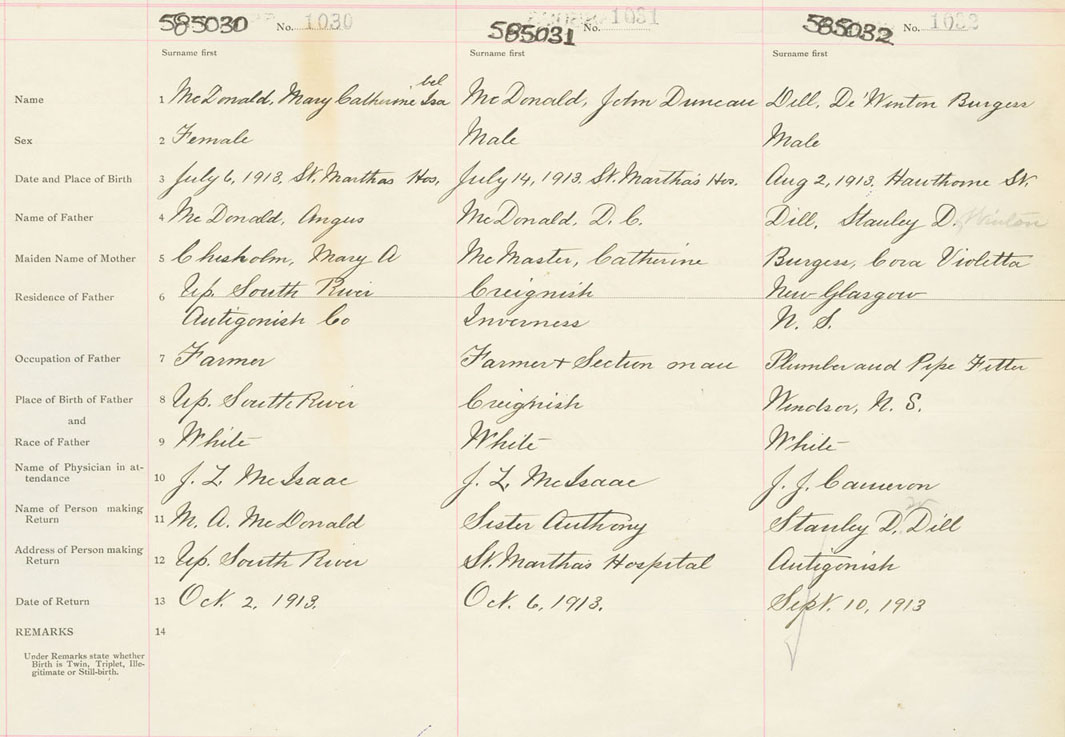 585030 No. 1030 585031 No. 1031 585032 No. 1032
Surname first Surname first Surname first
bel
Name 1 McDonald, Mary Catherine Isa McDonald, John Duncan Dill, De'Winton Burgess
Sex 2 Female Male Male
Date and Place of Birth 3 July 6, 1913, St. Marthas Hos. July 14, 1913. St. Martha's Hos. Aug 2, 1913. Hawthorne St.
Name of Father 4 McDonald, Angus McDonald, D. C. Dill, Stanley D. Winton
Maiden Name of Mother 5 Chisholm, Mary A McMaster, Catherine Burgess, Cora Violetta
Residence of Father 6 Up. South River Creignish New Glasgow
Antigonish Co Inverness N. S.
Occupation of Father 7 Farmer Farmer + Section man Plumber and Pipe Fitter
Place of Birth of Father 8 Up. South River Creignish Windsor, N. S.
and
Race of Father 9 White White White
Name of Physician in at-
tendance 10 J. L. McIsaac J. L. McIsaac J. J. Cameron
Name of Person making
Return 11 M. A. McDonald Sister Anthony Stanley D. Dill
Address of Person making
Return 12 Up. South River St. Marthas Hospital Antigonish
Date of Return 13 Oct. 2, 1913. Oct. 6, 1913. Sept. 10, 1913
REMARKS 14
Under Remarks state whether
Birth is Twin, Triplet, Ille-
gitimate or Still-birth.